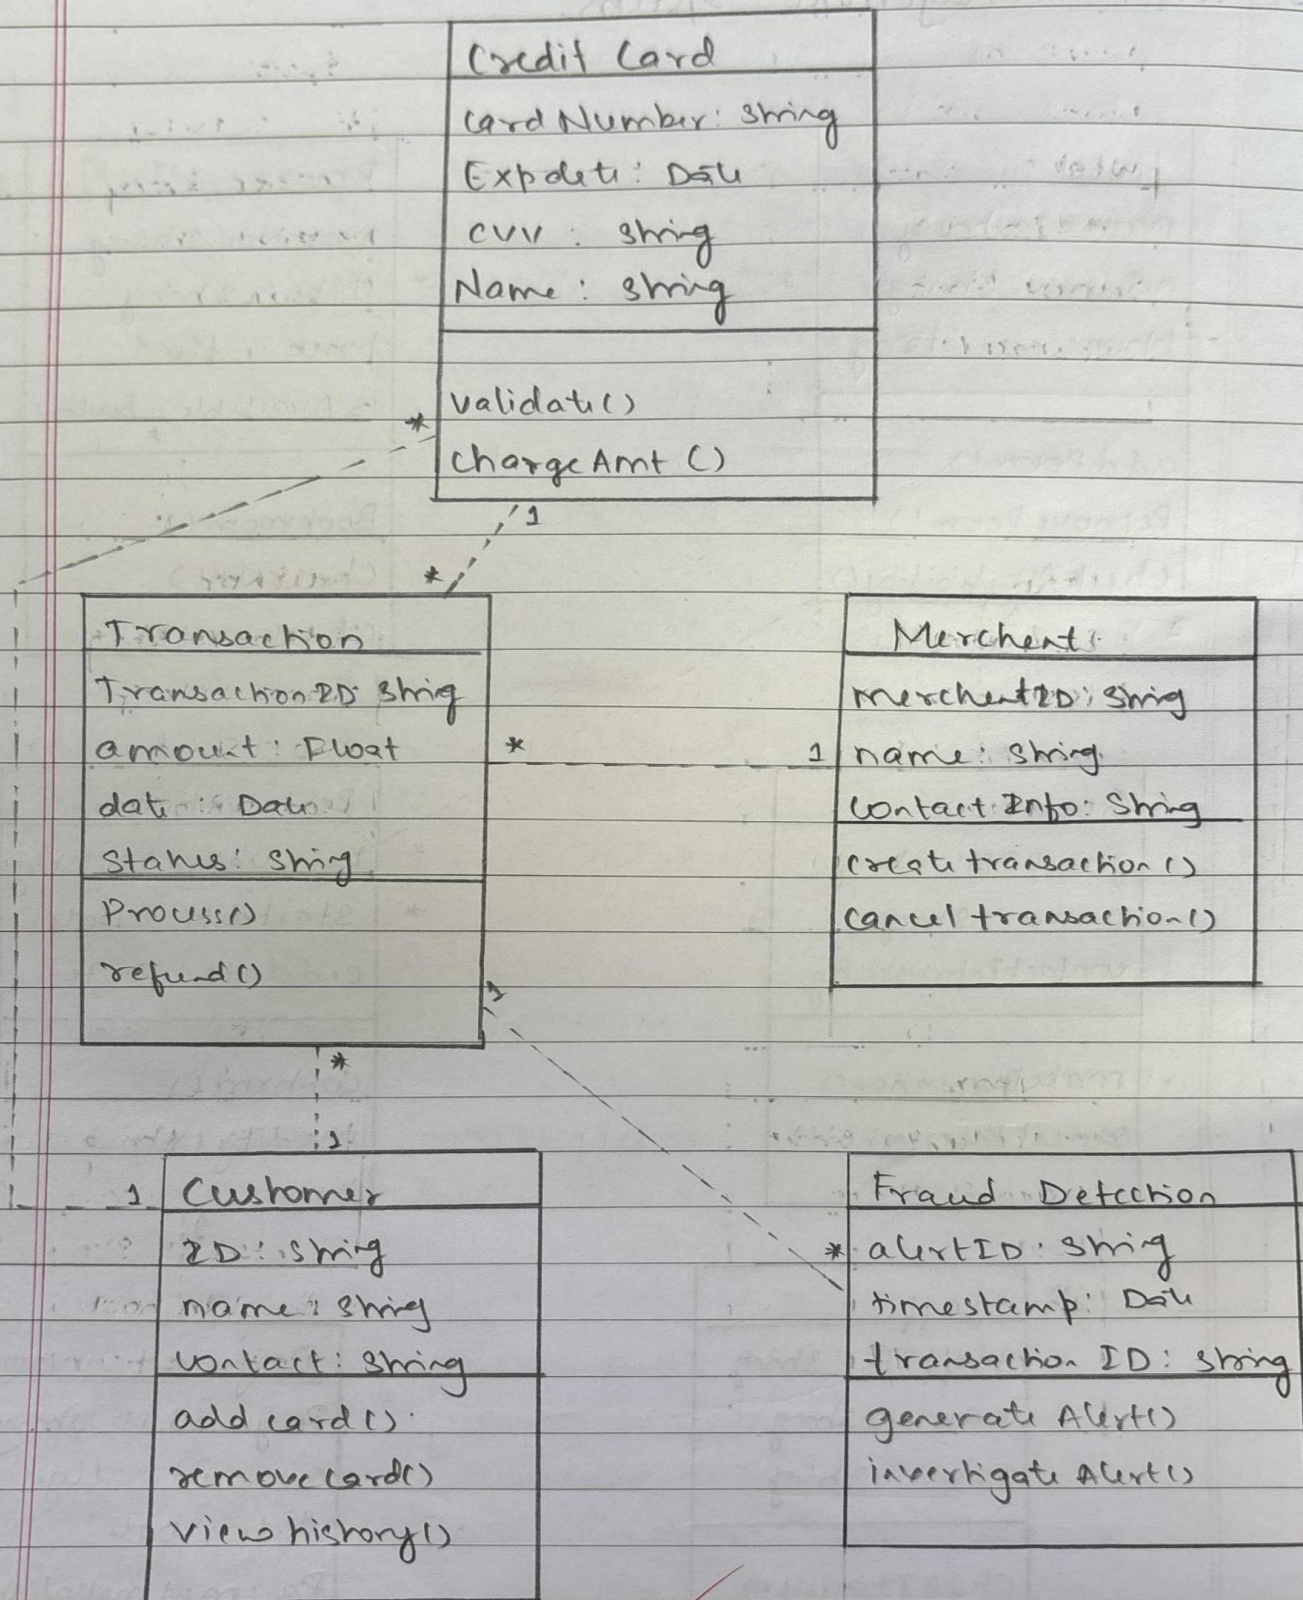 Credit Card
Card Number: String
Expdate: Date
CVV: String
Name: String
validate()
chargeAmt ()
*
1
*
Transaction
TransactionID: String
amount: Float
date: Date
Status: String
Process()
refund()
*
1
Merchent
merchentID: String
name: String
Contact Info: String
create transaction()
cancel transaction()
1
*
1
1
Customer
ID: String
name: String
Contact: String
add card()
remove card()
view history()
Fraud Detection
*
alertID: String
timestamp: Date
transaction ID: String
generate Alert()
investigate Alert()